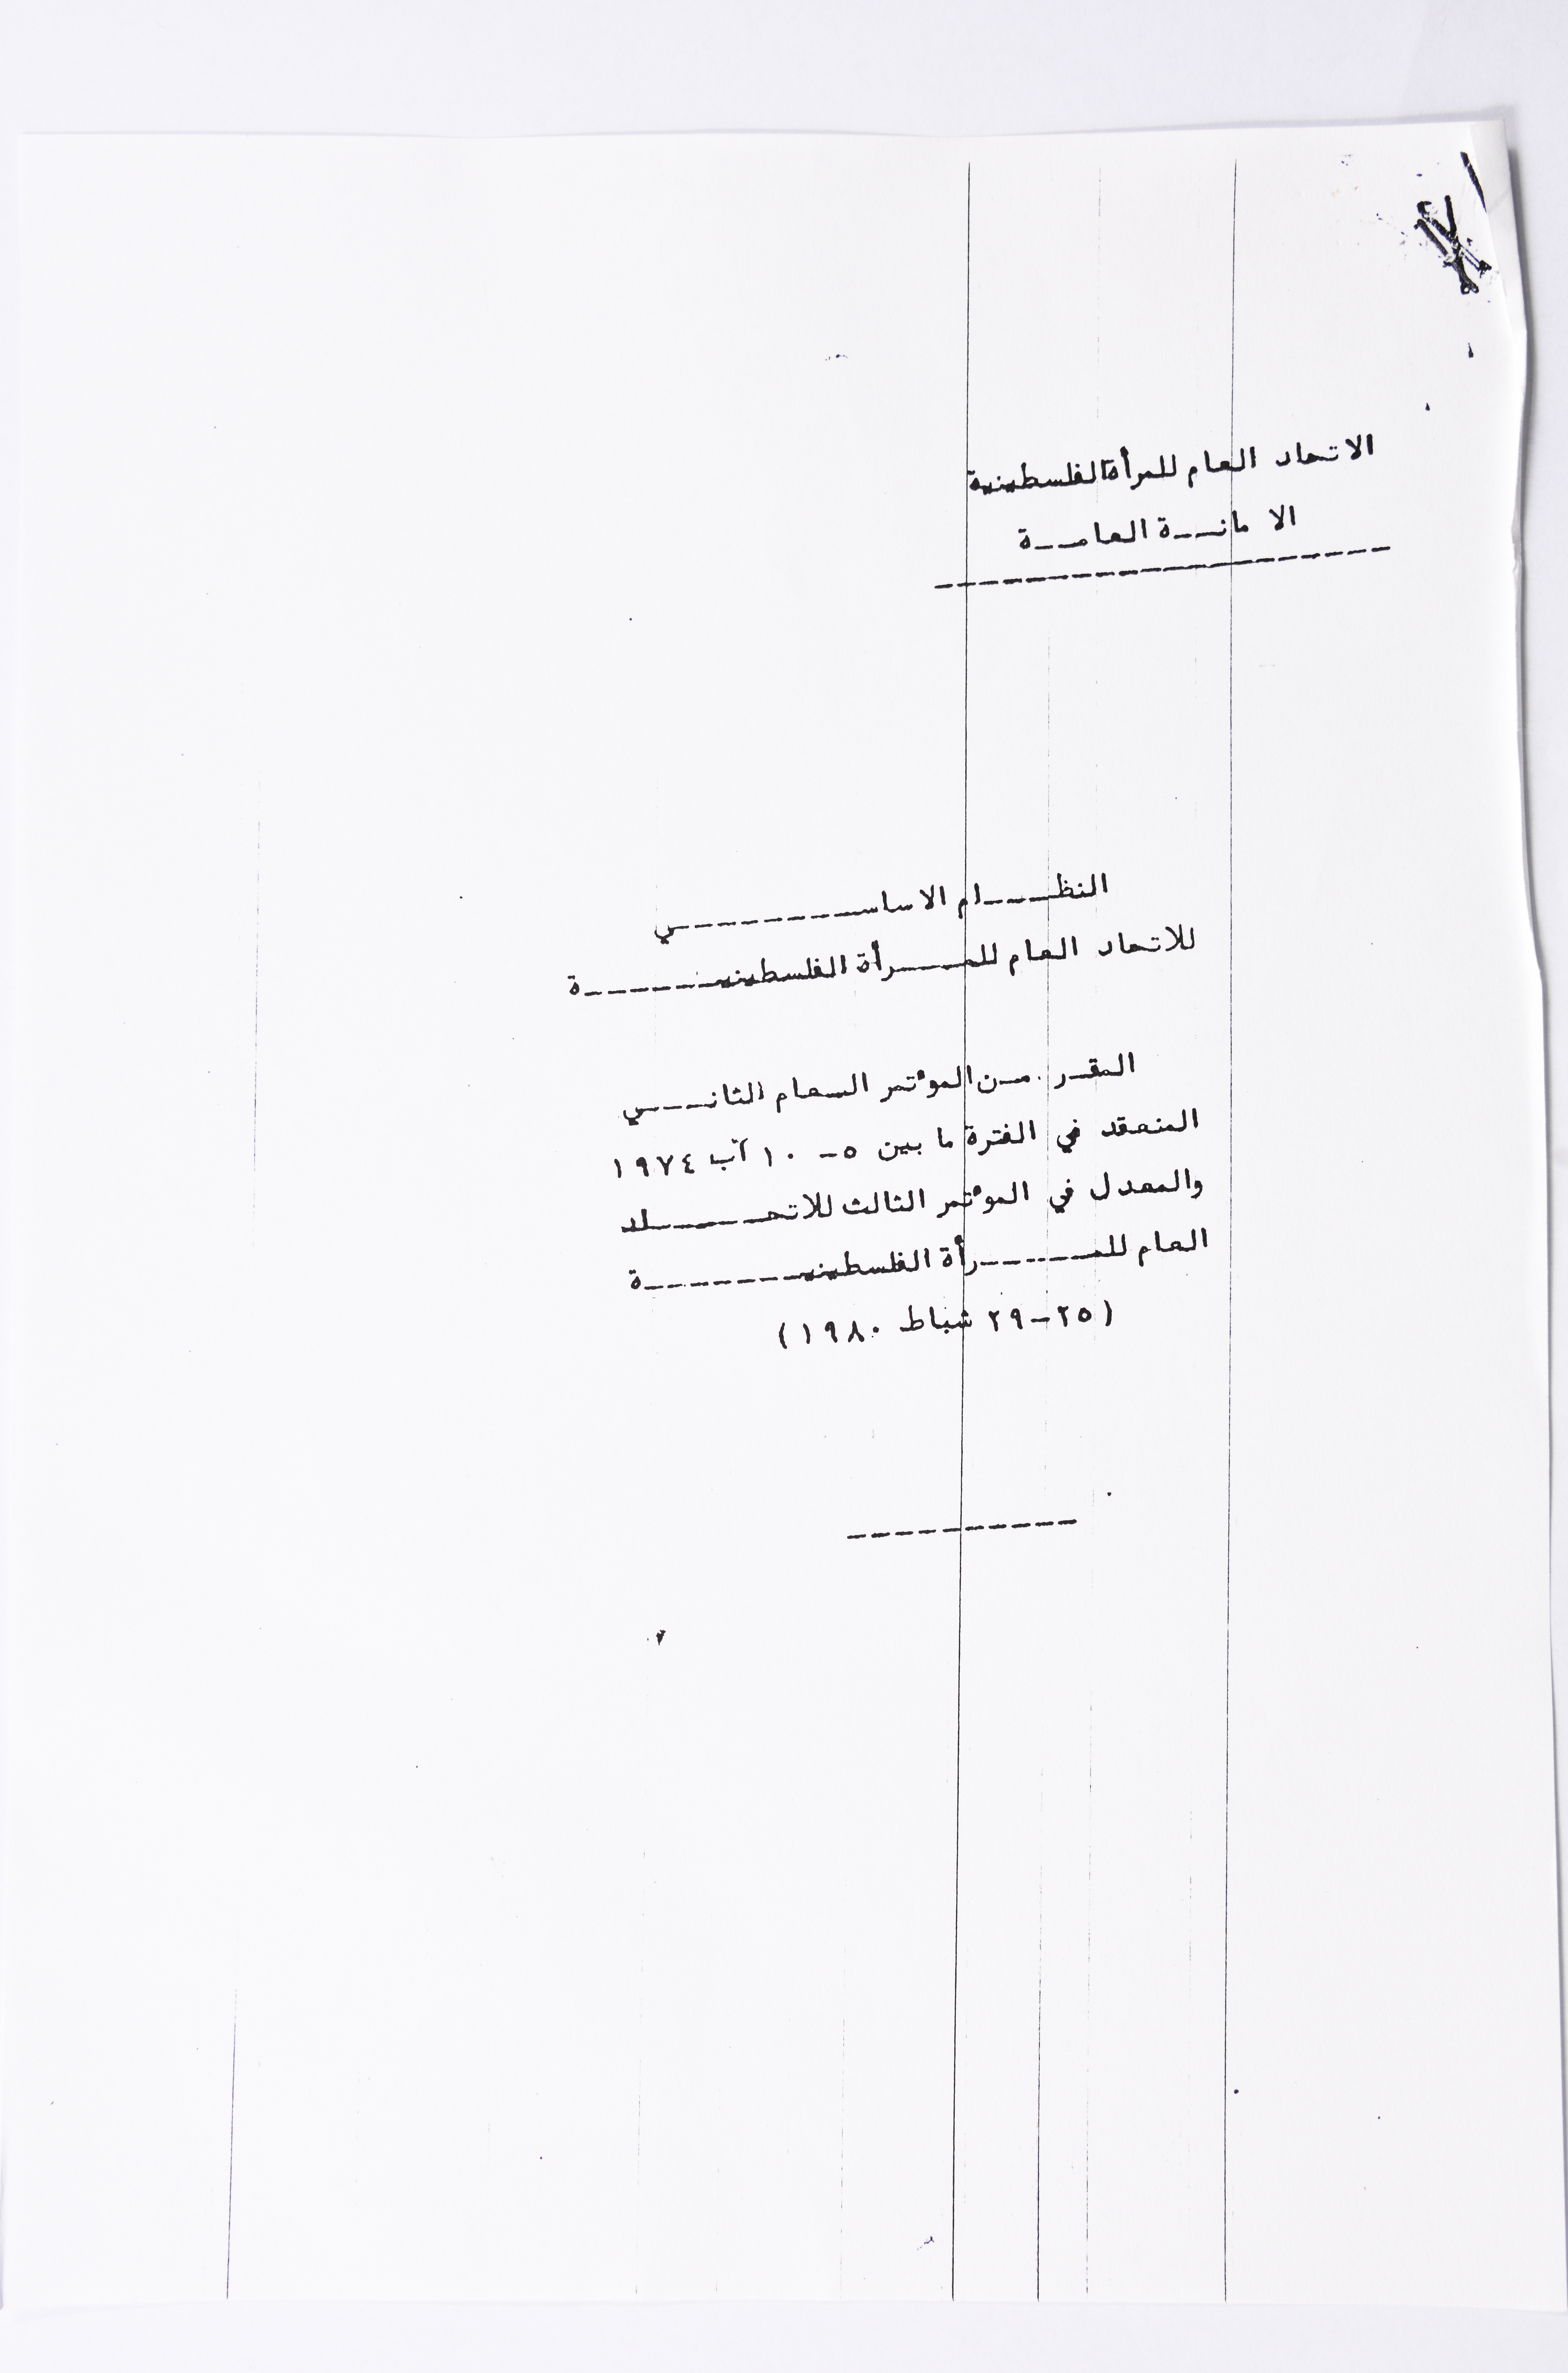 الاتحاد العام للمرأة الفلسطينية
الامانة العامة
النظام الاساسي
للاتحاد العام للمرأة الفلسطينية
المقر من المؤتمر العام الثاني
المنعقد في الفترة ما بين ٥- ١٠ آب ١٩٧٤
والمعدل في المؤتمر الثالث للاتحاد
العام للمرأة الفلسطينية
(٢٥-٢٩ شباط ١٩٨٠)